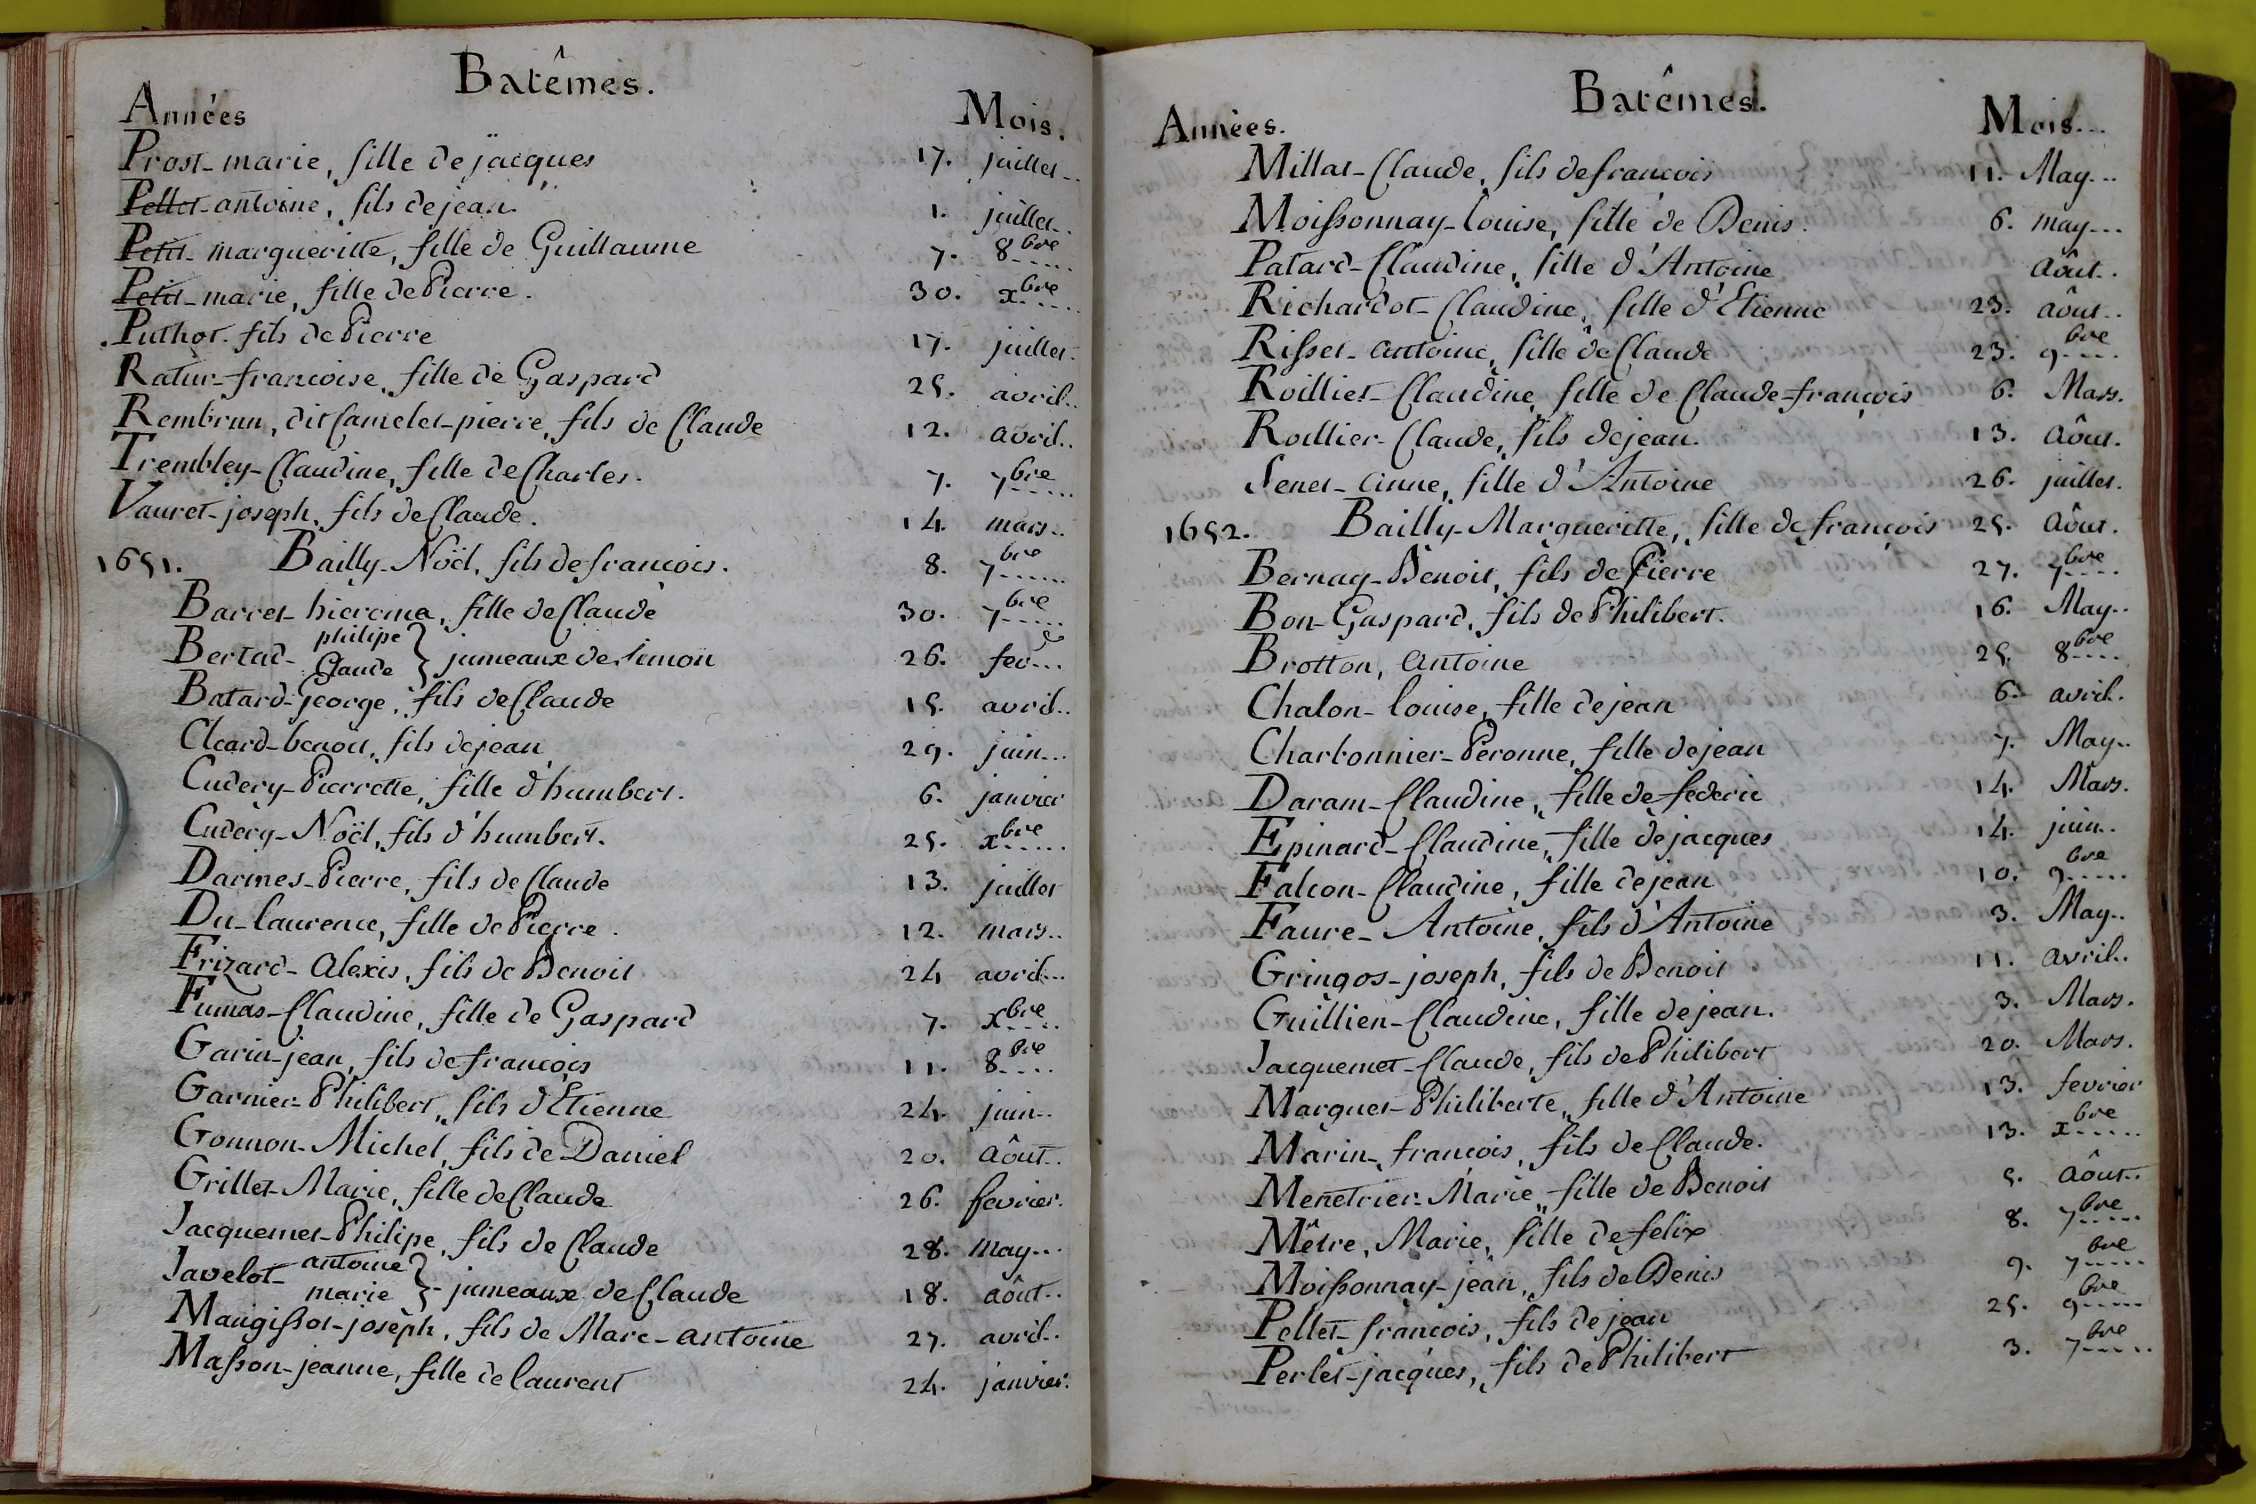 Batêmes.
Années Mois.
Prost-marie, fille de jacques 17. juillet..
Pellet-antoine, fils de jean. 1. juillet..
Petit-margueritte, fille de Guillaume 7. 8bre.....
Petit-marie, fille de Pierre. 30. xbre.....
Puthot. fils de Pierre 17. juillet.
Ratur-francoise, fille de Gaspard 25. avril..
Rembrun, dit Camelet-pierre, fils de Claude 12. avril..
Trembley-Claudine, fille de Charles. 7. 7bre......
Vauret-joseph, fils de Claude. 14. mars..
1651. Bailly-Noël, fils de francois. 8. 7bre......
Barret-hieroma, fille de Claude 30. 7bre.....
Bertad- philipe Claude } jumeaux de simon 26. fev...
Batard-George, fils de Claude 15. avril..
Cleard-benoit, fils de jean 29. juin...
Cudery-Pierrette, fille d'humbert. 6. janvier
Cudery-Noël, fils d'humbert. 25. xbre.....
Darmes-Pierre, fils de Claude 13. juillet
Du-laurence, fille de Pierre. 12. mars..
Frizard-Alexis, fils de Benoit 24 avril...
Fumas-Claudine, fille de Gaspard 7. xbre....
Garin-jean, fils de françois 11. 8bre....
Garnier-Philibert, fils d'Etienne 24. juin..
Gonnon-Michel, fils de Daniel 20. Aôut..
Grillet-Marie, fille de Claude 26. fevrier.
Jacquemet-Philipe, fils de Claude 28. may...
Javelot- antoine marie } -jumeaux de Claude 18. aôut..
Maugissot-josèph, fils de Marc-antoine 27. avril..
Masson-jeanne, fille de laurent 24. janvier.
Batêmes.
Années. Mois...
Millat-Claude, fils de francois 11. May...
Moissonnay-louise, fille de Denis. 6. may...
Patard-Claudine, fille d'Antoine Aôut..
Richardot-Claudine, fille d'Etienne 23. aôut..
Risset-antoine, fille de Claude 23. 9bre....
Roilliet-Claudine, fille de Claude-françois 6. Mars.
Roillier-Claude, fils de jean. 13. Aôut.
Senet-Anne, fille d'Antoine 26. juillet.
1652. Bailly-Margueritte, fille de françois 25. Aôut.
Bernay-Benoit, fils de Pierre 27. 7bre....
Bon-Gaspard, fils de Philibert. 16. May..
Brotton, Antoine 25. 8bre....
Chalon-louise, fille de jean 6. avril.
Charbonnier-Peronne, fille de jean 7. May..
Daram-Claudine, fille de federic 14. Mars.
Epinard-Claudine, fille de jacques 14. juin..
Falcon-Claudine, fille de jean 10. 9bre.....
Faure-Antoine, fils d'Antoine 3. May..
Gringos-joseph, fils de Benoit 11. avril..
Guillien-Claudine, fille de jean. 3. Mars.
Jacquemet-Claude, fils de Philibert 20. Mars.
Marques-Philiberte, fille d'Antoine 13. fevrier
Marin-francois, fils de Claude. 13. xbre.....
Menetrier-Marie, fille de Benoit 5. Aôut..
Mêtre, Marie, fille de felix 8. 7bre.....
Moissonnay-jean, fils de Denis 9. 7bre.....
Pellet-francois, fils de jean 25. 9bre.....
Perlet-jacques, fils de Philibert 3. 7bre.....